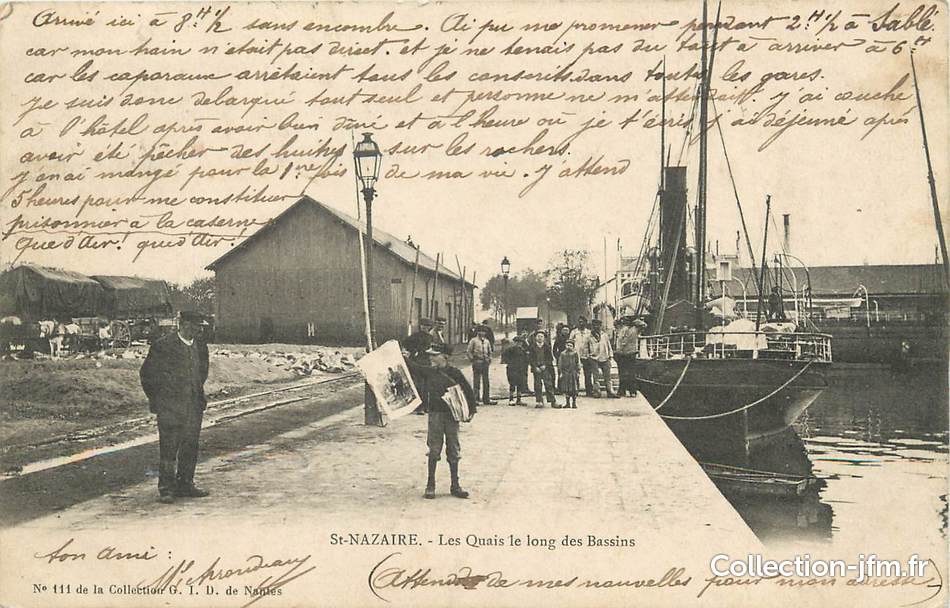 Arrivé ici à 8H ½ sans encombre. Ai pu me promener pendant 2H ½ à Sablé
car mon train n'était pas direct. et je ne tenais pas du tout à arriver à 6H
car les caporaux arrêtaient tous les conscrits dans toutes les gares.
Je suis donc débarqué tout seul et personne ne m'attendait. j'ai couché
à l'hôtel après avoir bien dîné et à l'heure où je t'écris j'ai déjeuné après
avoir été pêcher des huitres sur les rochers.
J'en ai mangé pour la 1ère fois de ma vie. J'attend
5 heures pour me constituer
prisonnier à la caserne
Que d'Air! que d'Air!
St-NAZAIRE. - Les Quais le long des Bassins
ton ami :
(Attends de mes nouvelles pour mon adresse)
No 111 de la Collection G. I. D. de Nantes
Collection-jfm.fr